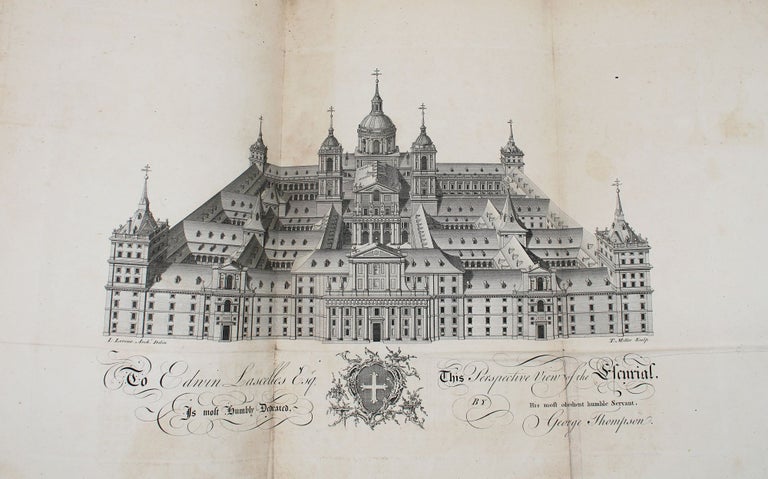 I. Lerour Arch. Delin.
T. Miller Sculp.
To Edwin Lascelles Esq.
Is most Humbly Dedicated.
This Perspective View of the Escurial.
BY His most obedient humble Servant.
George Thompson.